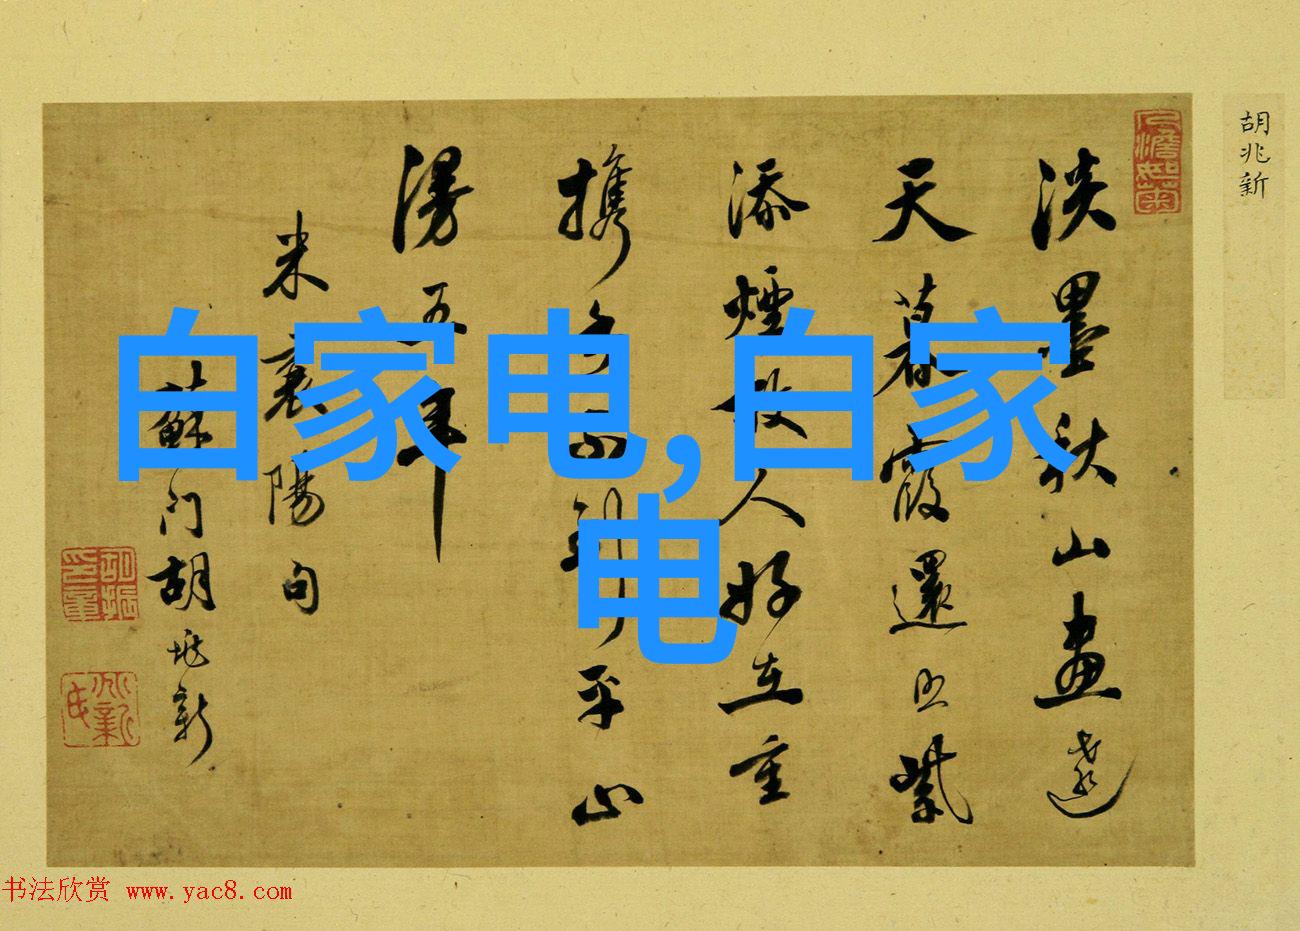 胡兆新
淡墨秋山畫遠
天暮霞還照紫
添煙故人好在重
攜手不到平山
漫五年
米襄陽句
蘇門胡兆新
白家电,白家
电
书法欣赏 www.yac8.com